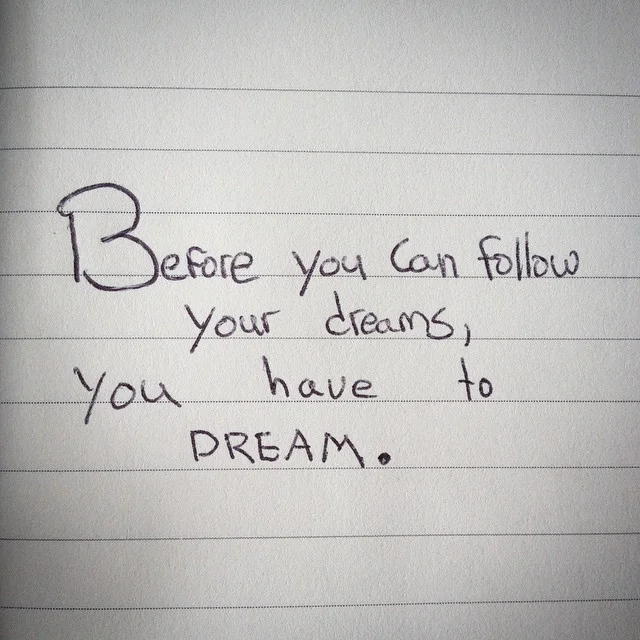 Before you can follow
your dreams,
you have to
DREAM.